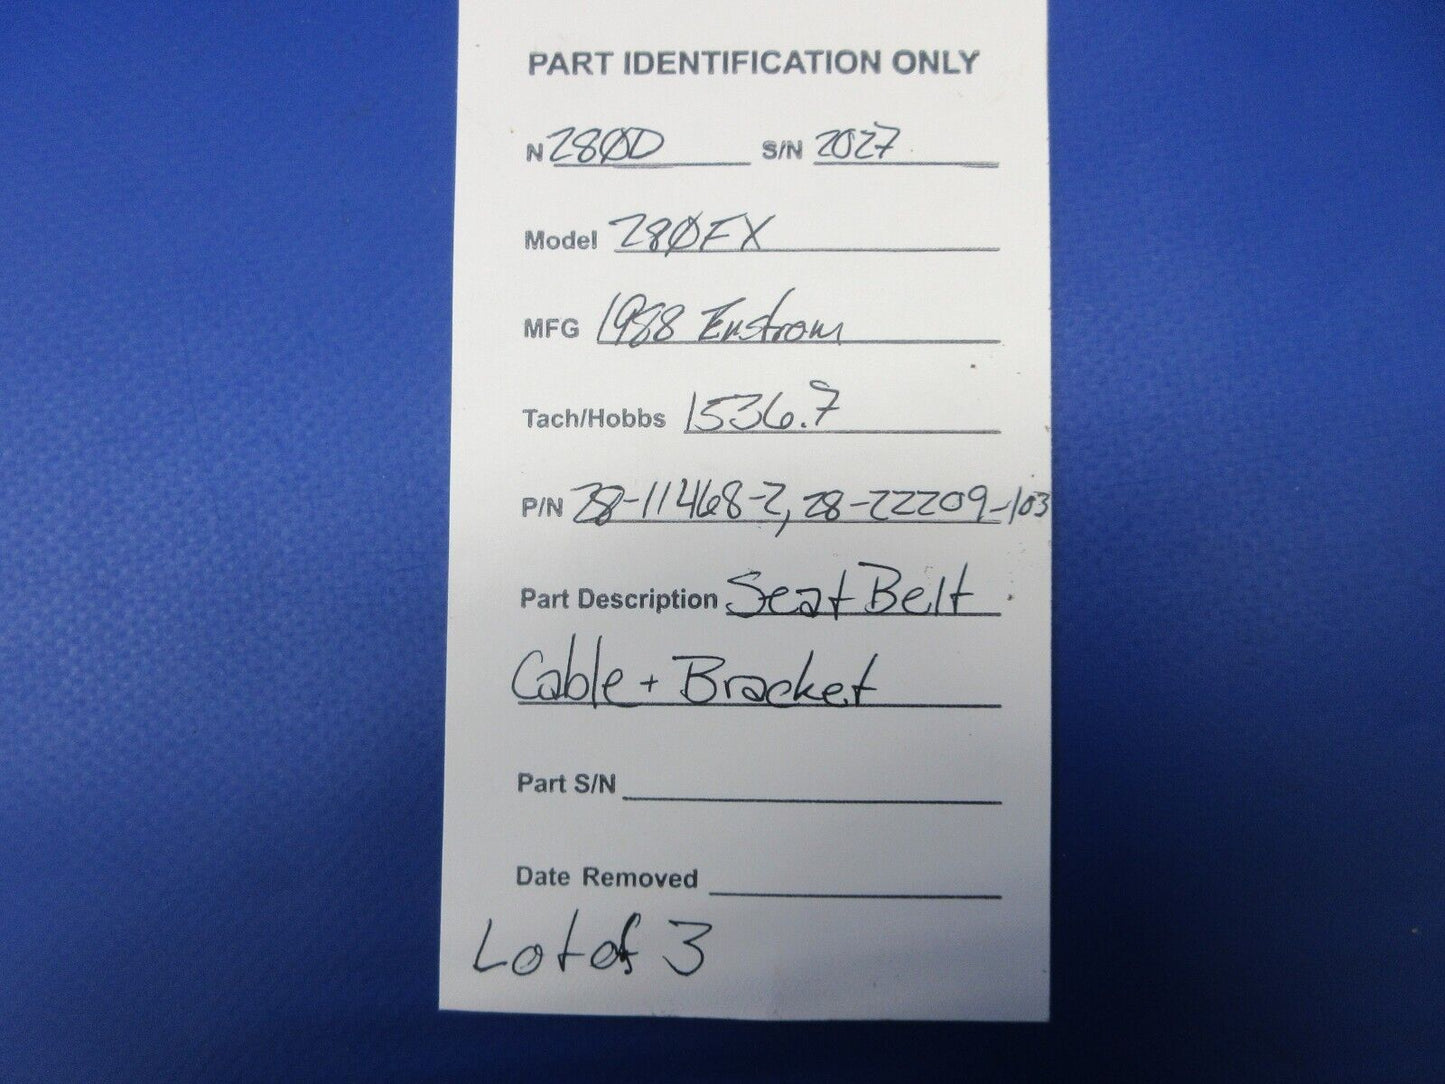 PART IDENTIFICATION ONLY
N 280D S/N 2027
Model 280FX
MFG 1988 Enstrom
Tach/Hobbs 1536.7
P/N 28-11468-2, 28-22209-103
Part Description Seat Belt
Cable + Bracket
Part S/N
Date Removed
Lot of 3